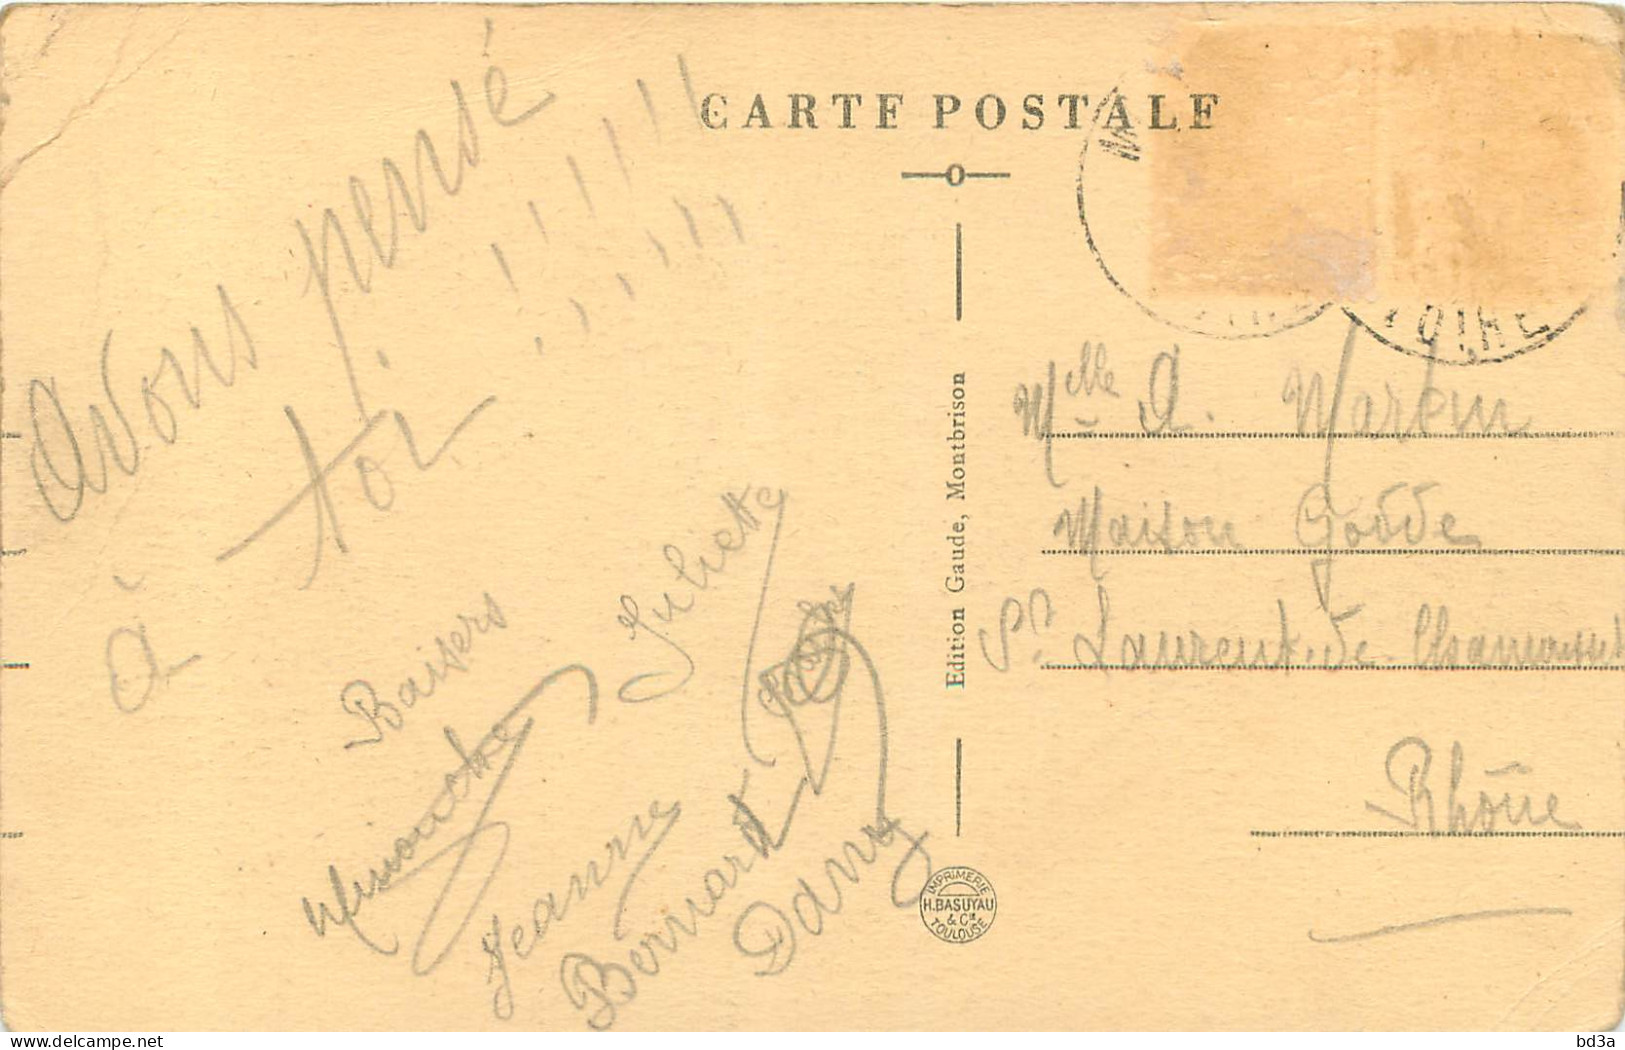 CARTE POSTALE
Avons pensé
à toi !!!!!!
Baisers
Juliette
Minouche
Jeanne
Bernard
Dany
Edition Gaude, Montbrison
IMPRIMERIE
H. BASUYAU
& Cie
TOULOUSE
LOIRE
Mlle A.
Maison Godde
St Laurent-de-Chamousset
Rhône
delcampe.net
bd3a